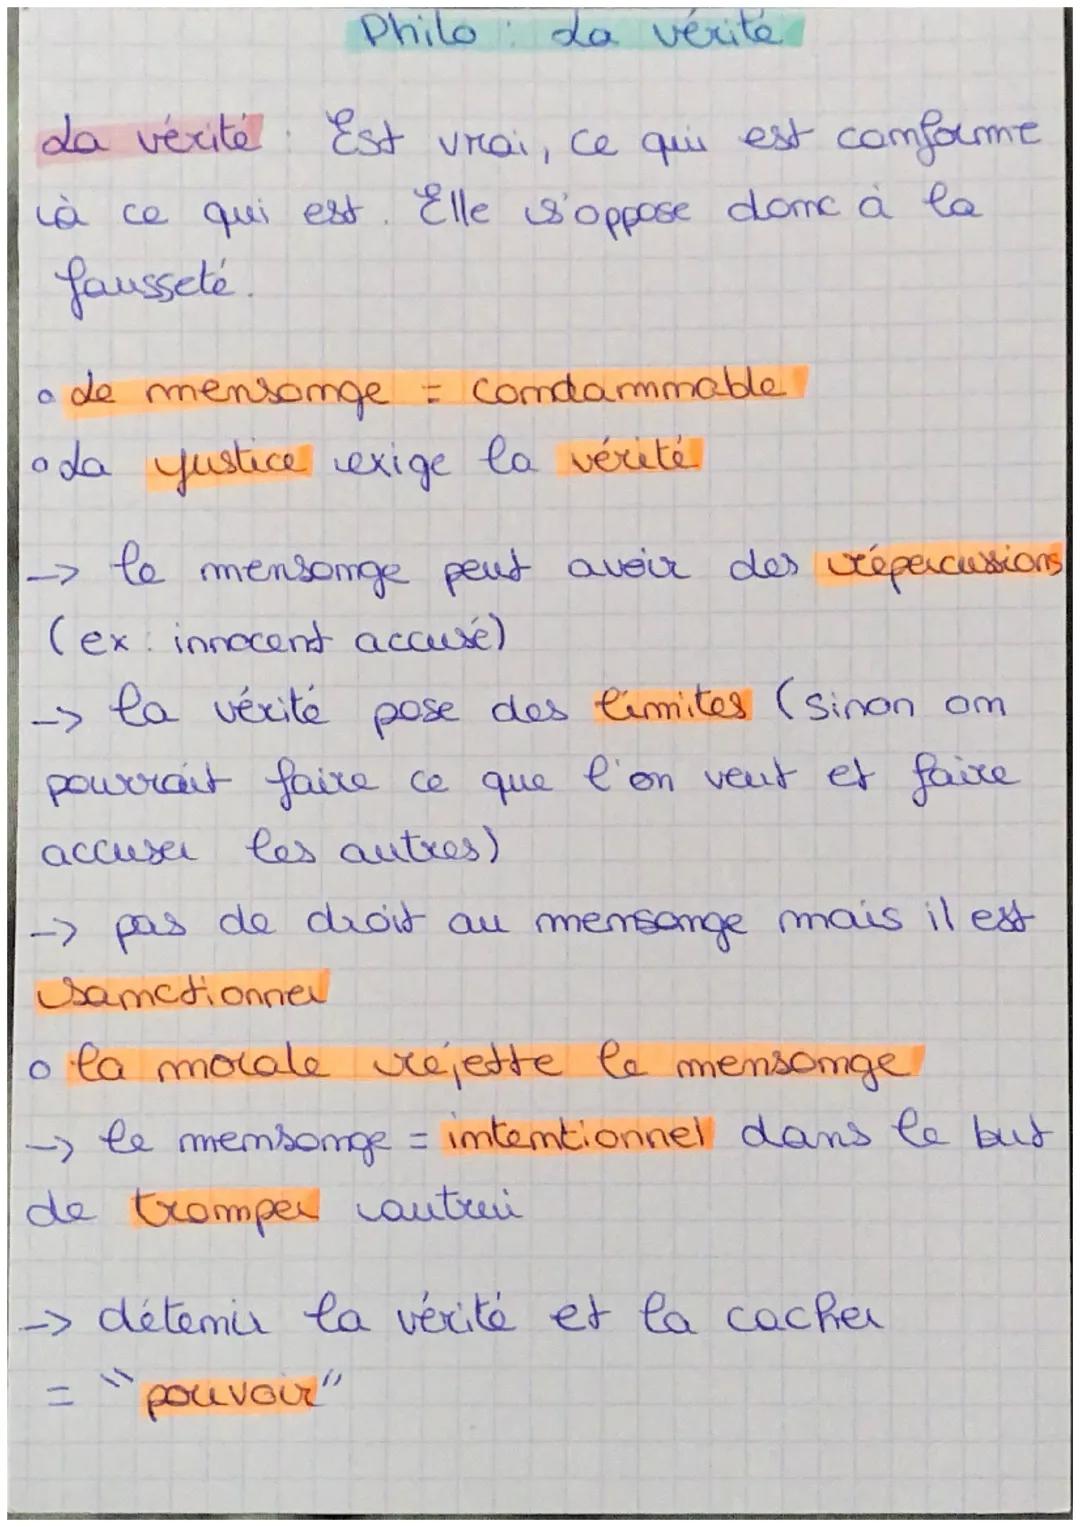 Philo : La vérité
La vérité : Est vrai, ce qui est conforme
à ce qui est. Elle s'oppose donc à la
fausseté.
o Le mensonge = condamnable
o La justice exige la vérité
-> le mensonge peut avoir des répercussions
(ex : innocent accusé)
-> la vérité pose des limites (sinon on
pourrait faire ce que l'on veut et faire
accuser les autres)
-> pas de droit au mensonge mais il est
sanctionner
o la morale rejette le mensonge
-> le mensonge = intentionnel dans le but
de tromper autrui
-> détenir la vérité et la cacher
= "pouvoir"